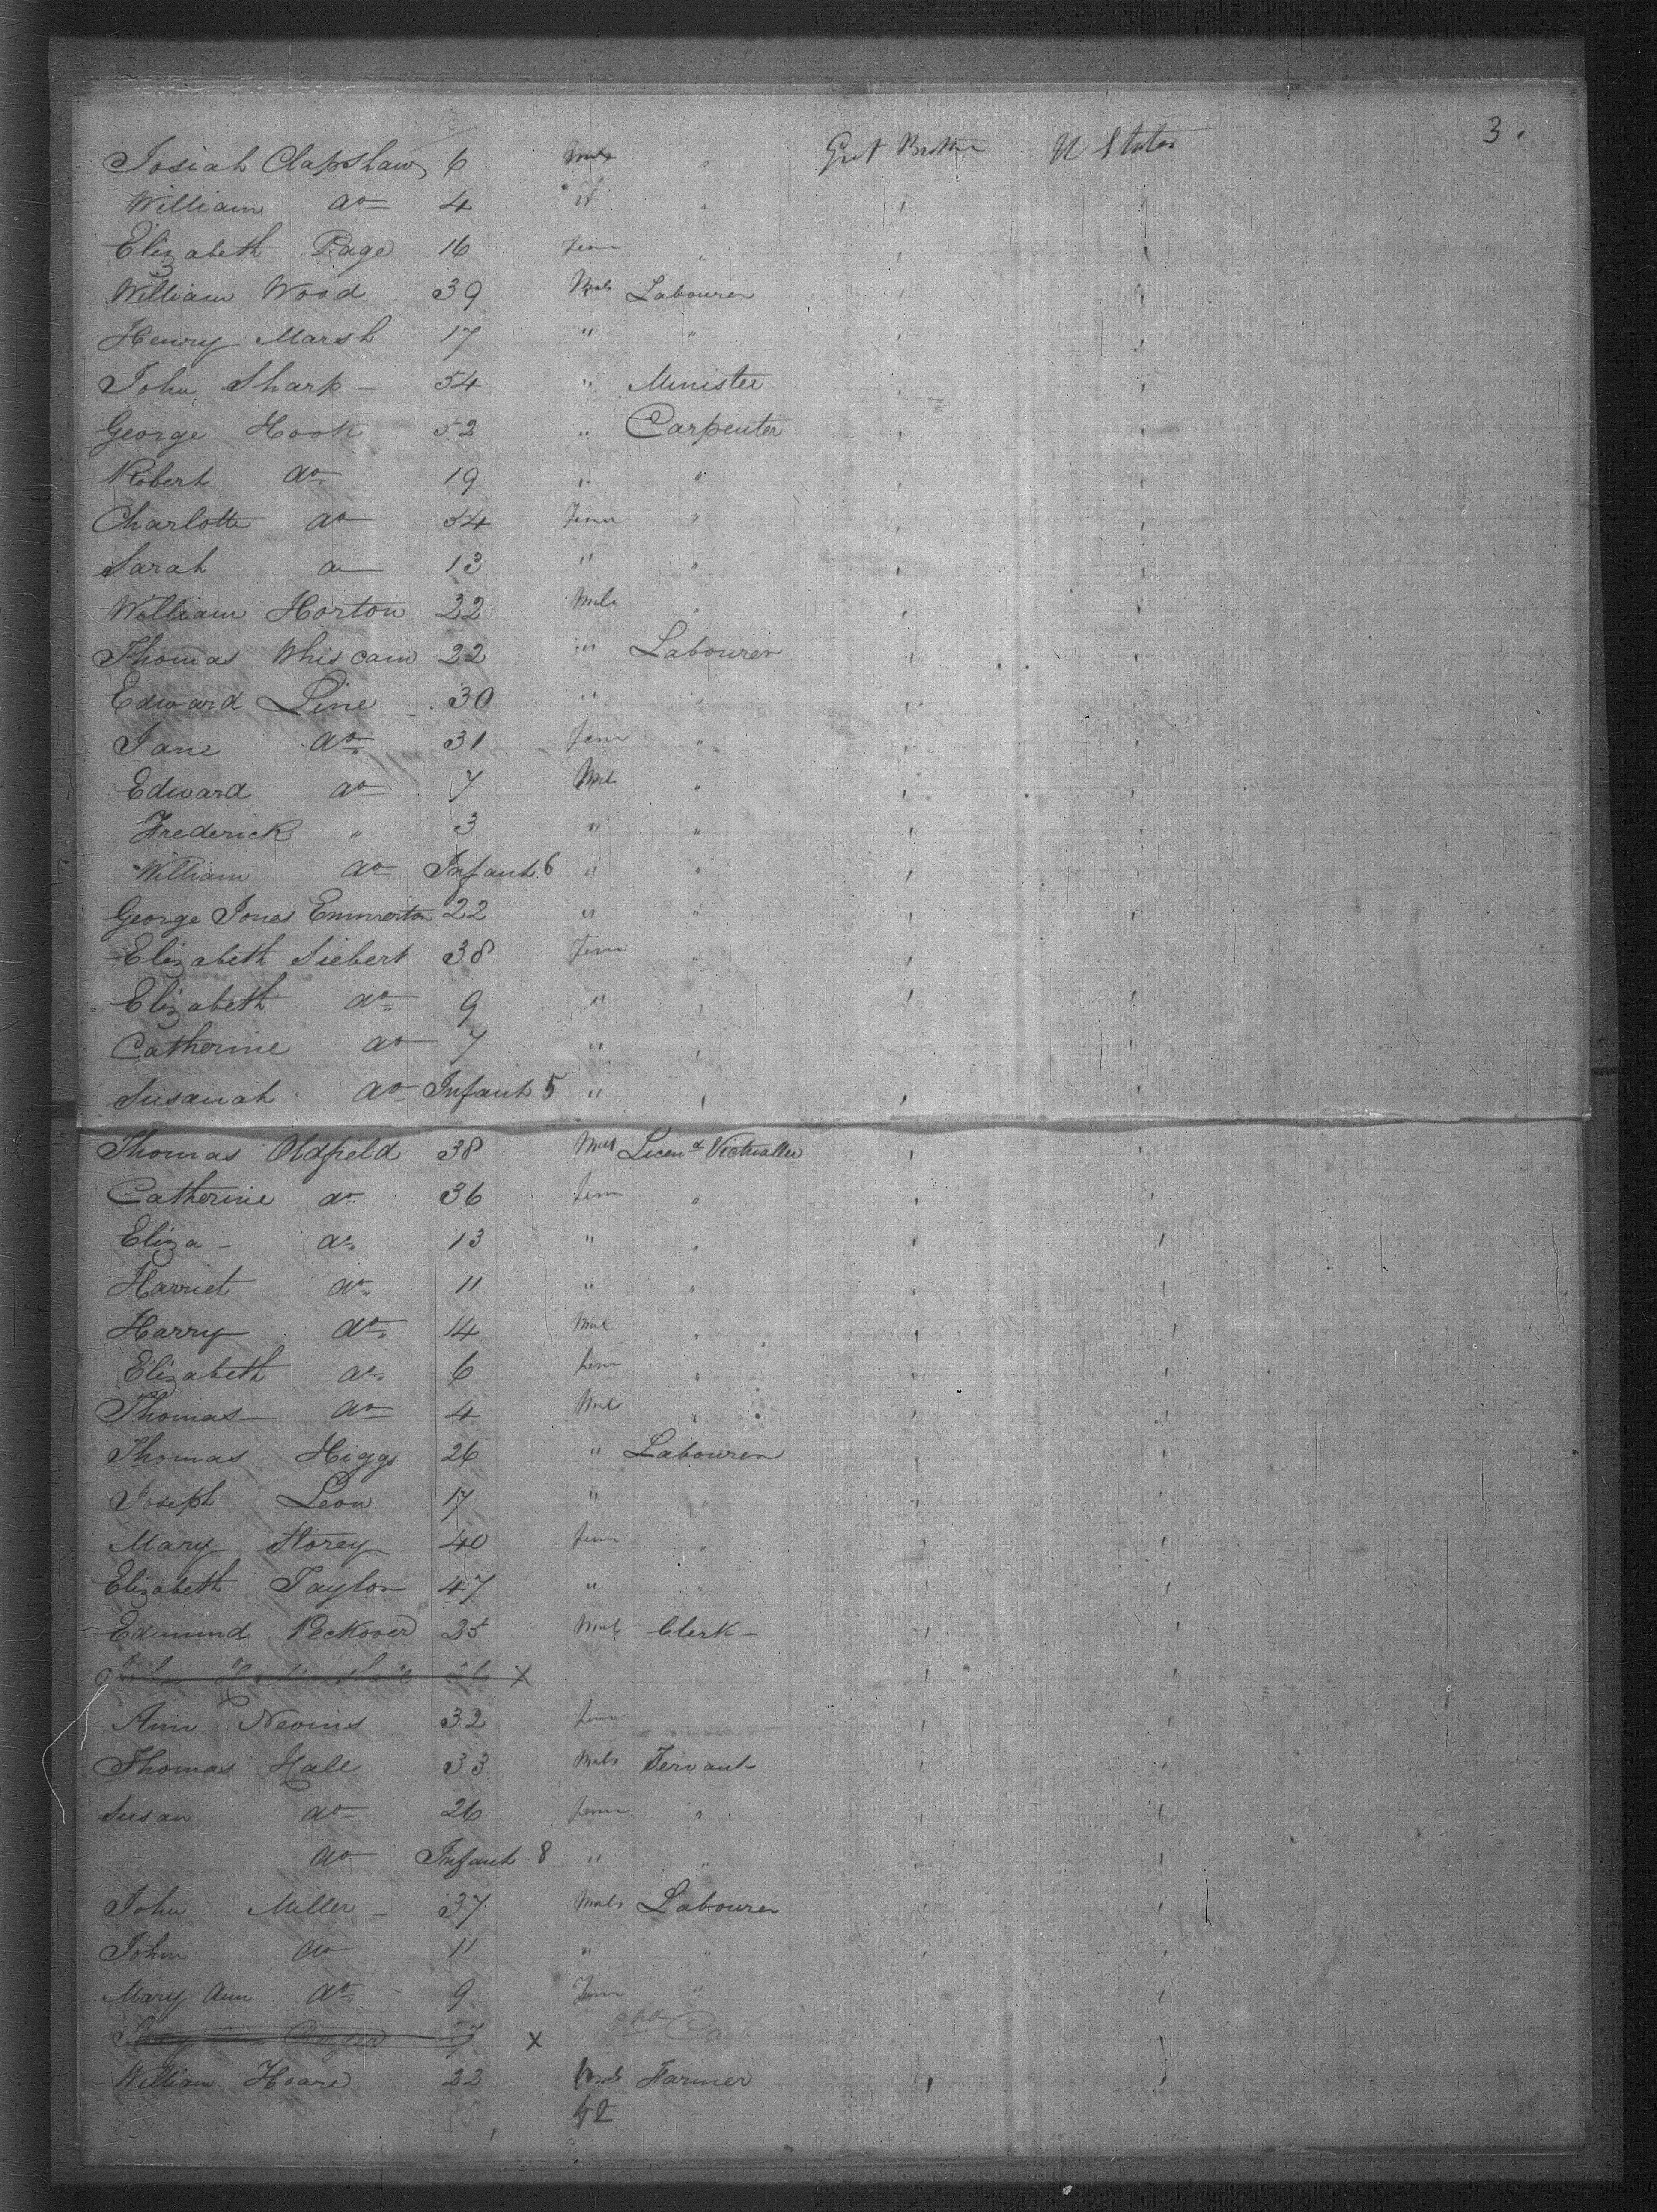 3.
Josiah Clapshaw 6 Male " Gret Brittn U States
William do 4 " " " "
Elizabeth Page 16 Fem " " "
William Wood 39 Male Labourer " "
Henry Marsh 17 " " " "
John Sharp - 54 " Minister " "
George Hook 52 " Carpenter " "
Robert do 19 " " " "
Charlotte do 54 Fem " " "
Sarah do 13 " " " "
William Horton 22 Male " " "
Thomas Whiscam 22 " Labourer " "
Edward Line 30 " " " "
Jane do 31 Fem " " "
Edward do 7 Male " " "
Frederick " 3 " " " "
William do Infant 6 " " " "
George Jones Emmerton 22 " " " "
Elizabeth Siebert 38 Fem " "
Elizabeth do 9 " " " "
Catherine do 7 " " "
Susanah do Infant 5 " " " "
Thomas Oldfield 38 Male Licend Victualler " "
Catherine do 36 Fem " " "
Eliza - do 13 " " " "
Harriet do 11 " " " "
Harry do 14 Male " " "
Elizabeth do 6 Fem " " "
Thomas - do 4 Male " " "
Thomas Higgs 26 " Labourer " "
Joseph Leon 17 " " " "
Mary Storey 40 Fem " " "
Elizabeth Taylor 47 " " " "
Edmund Peckover 25 Male Clerk - " "
X " "
Ann Nevins 32 Fem " "
Thomas Hall 33 Male Servant " "
Susan do 26 Fem " " "
do Infant 8 " " " "
John Miller - 37 Male Labourer " "
John do 11 " " " "
Mary Ann do 9 Fem " "
X
William Hoare 22 Male Farmer " "
42